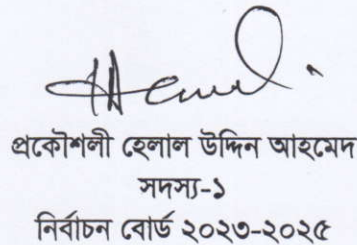 প্রকৌশলী হেলাল উদ্দিন আহমেদ
সদস্য-১
নির্বাচন বোর্ড ২০২৩-২০২৫